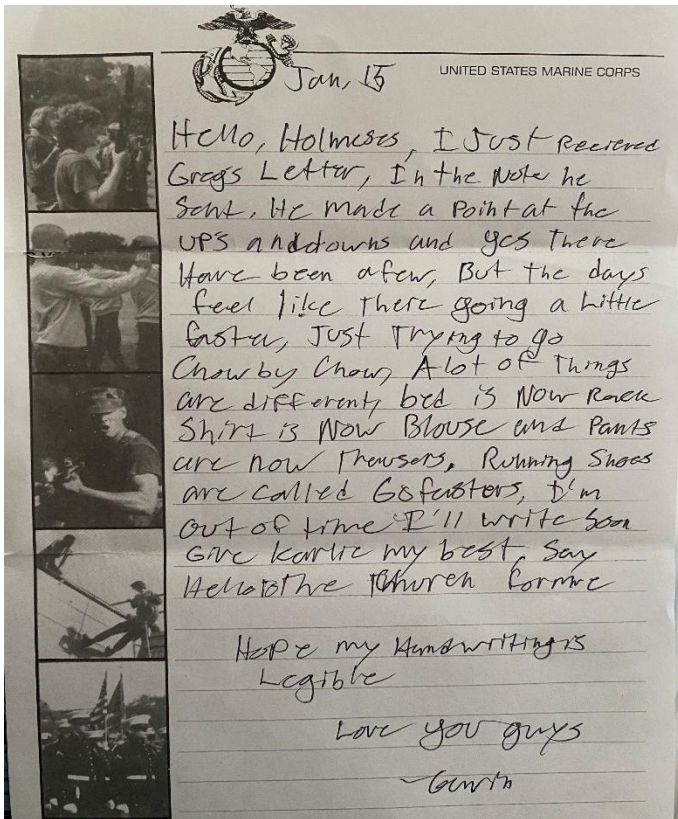 Jan, 15
UNITED STATES MARINE CORPS
Hello, Holmeses, I Just Recieved
Greg's Letter, In the Note he
Sent, He made a Point at the
UP's and downs and yes There
Have been a few, But the days
feel like There going a Little
faster, Just Trying to go
Chow by Chow, A lot of Things
are different, bed is Now Rack
Shirt is Now Blouse and Pants
are now Trousers, Running Shoes
are called Gofasters, I'm
out of time I'll write Soon
Give Karlie my best, Say
Hello to the Church for me
Hope my Handwriting is
Legible
Love you guys